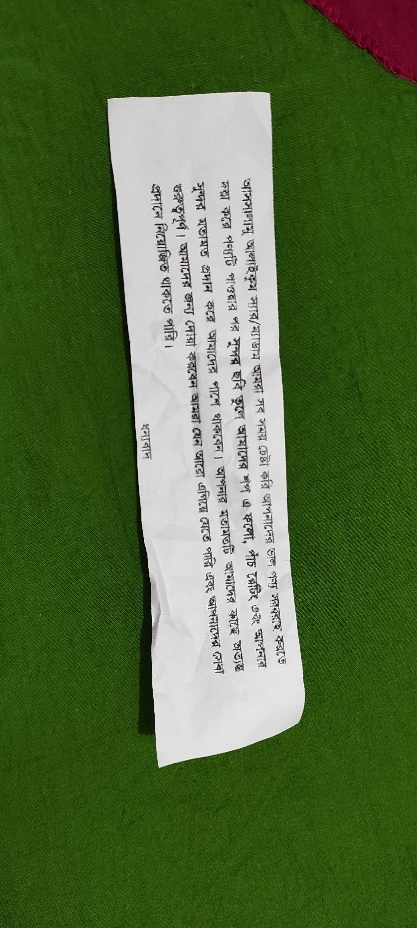 আসসালামু আলাইকুম স্যার/ম্যাডাম আমরা সব সময় চেষ্টা করি আপনাদের ভাল পন্য সরবরাহ করতে
দয়া করে পণ্যটি পাওয়ার পর সুন্দর ছবি তুলে আমাদের শপ এ ফলো, পাঁচ রেটিং এবং আপনার
সুন্দর মতামত প্রদান করে আমাদের পাশে থাকবেন। আপনার মতামতটি আমাদের কাছে অত্যন্ত
গুরুত্বপূর্ণ। আমাদের জন্য দোয়া করবেন আমরা যেন আরো এগিয়ে যেতে পারি এবং আপনাদের সেবা
প্রদানে নিয়োজিত থাকতে পারি।
ধন্যবাদ